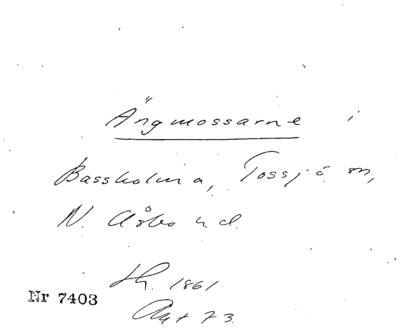 Ängmossarne i
Bassholma, Tossjö sn,
N. Åsbo hd.
Hh. 1861
Akt 73
Nr 7403